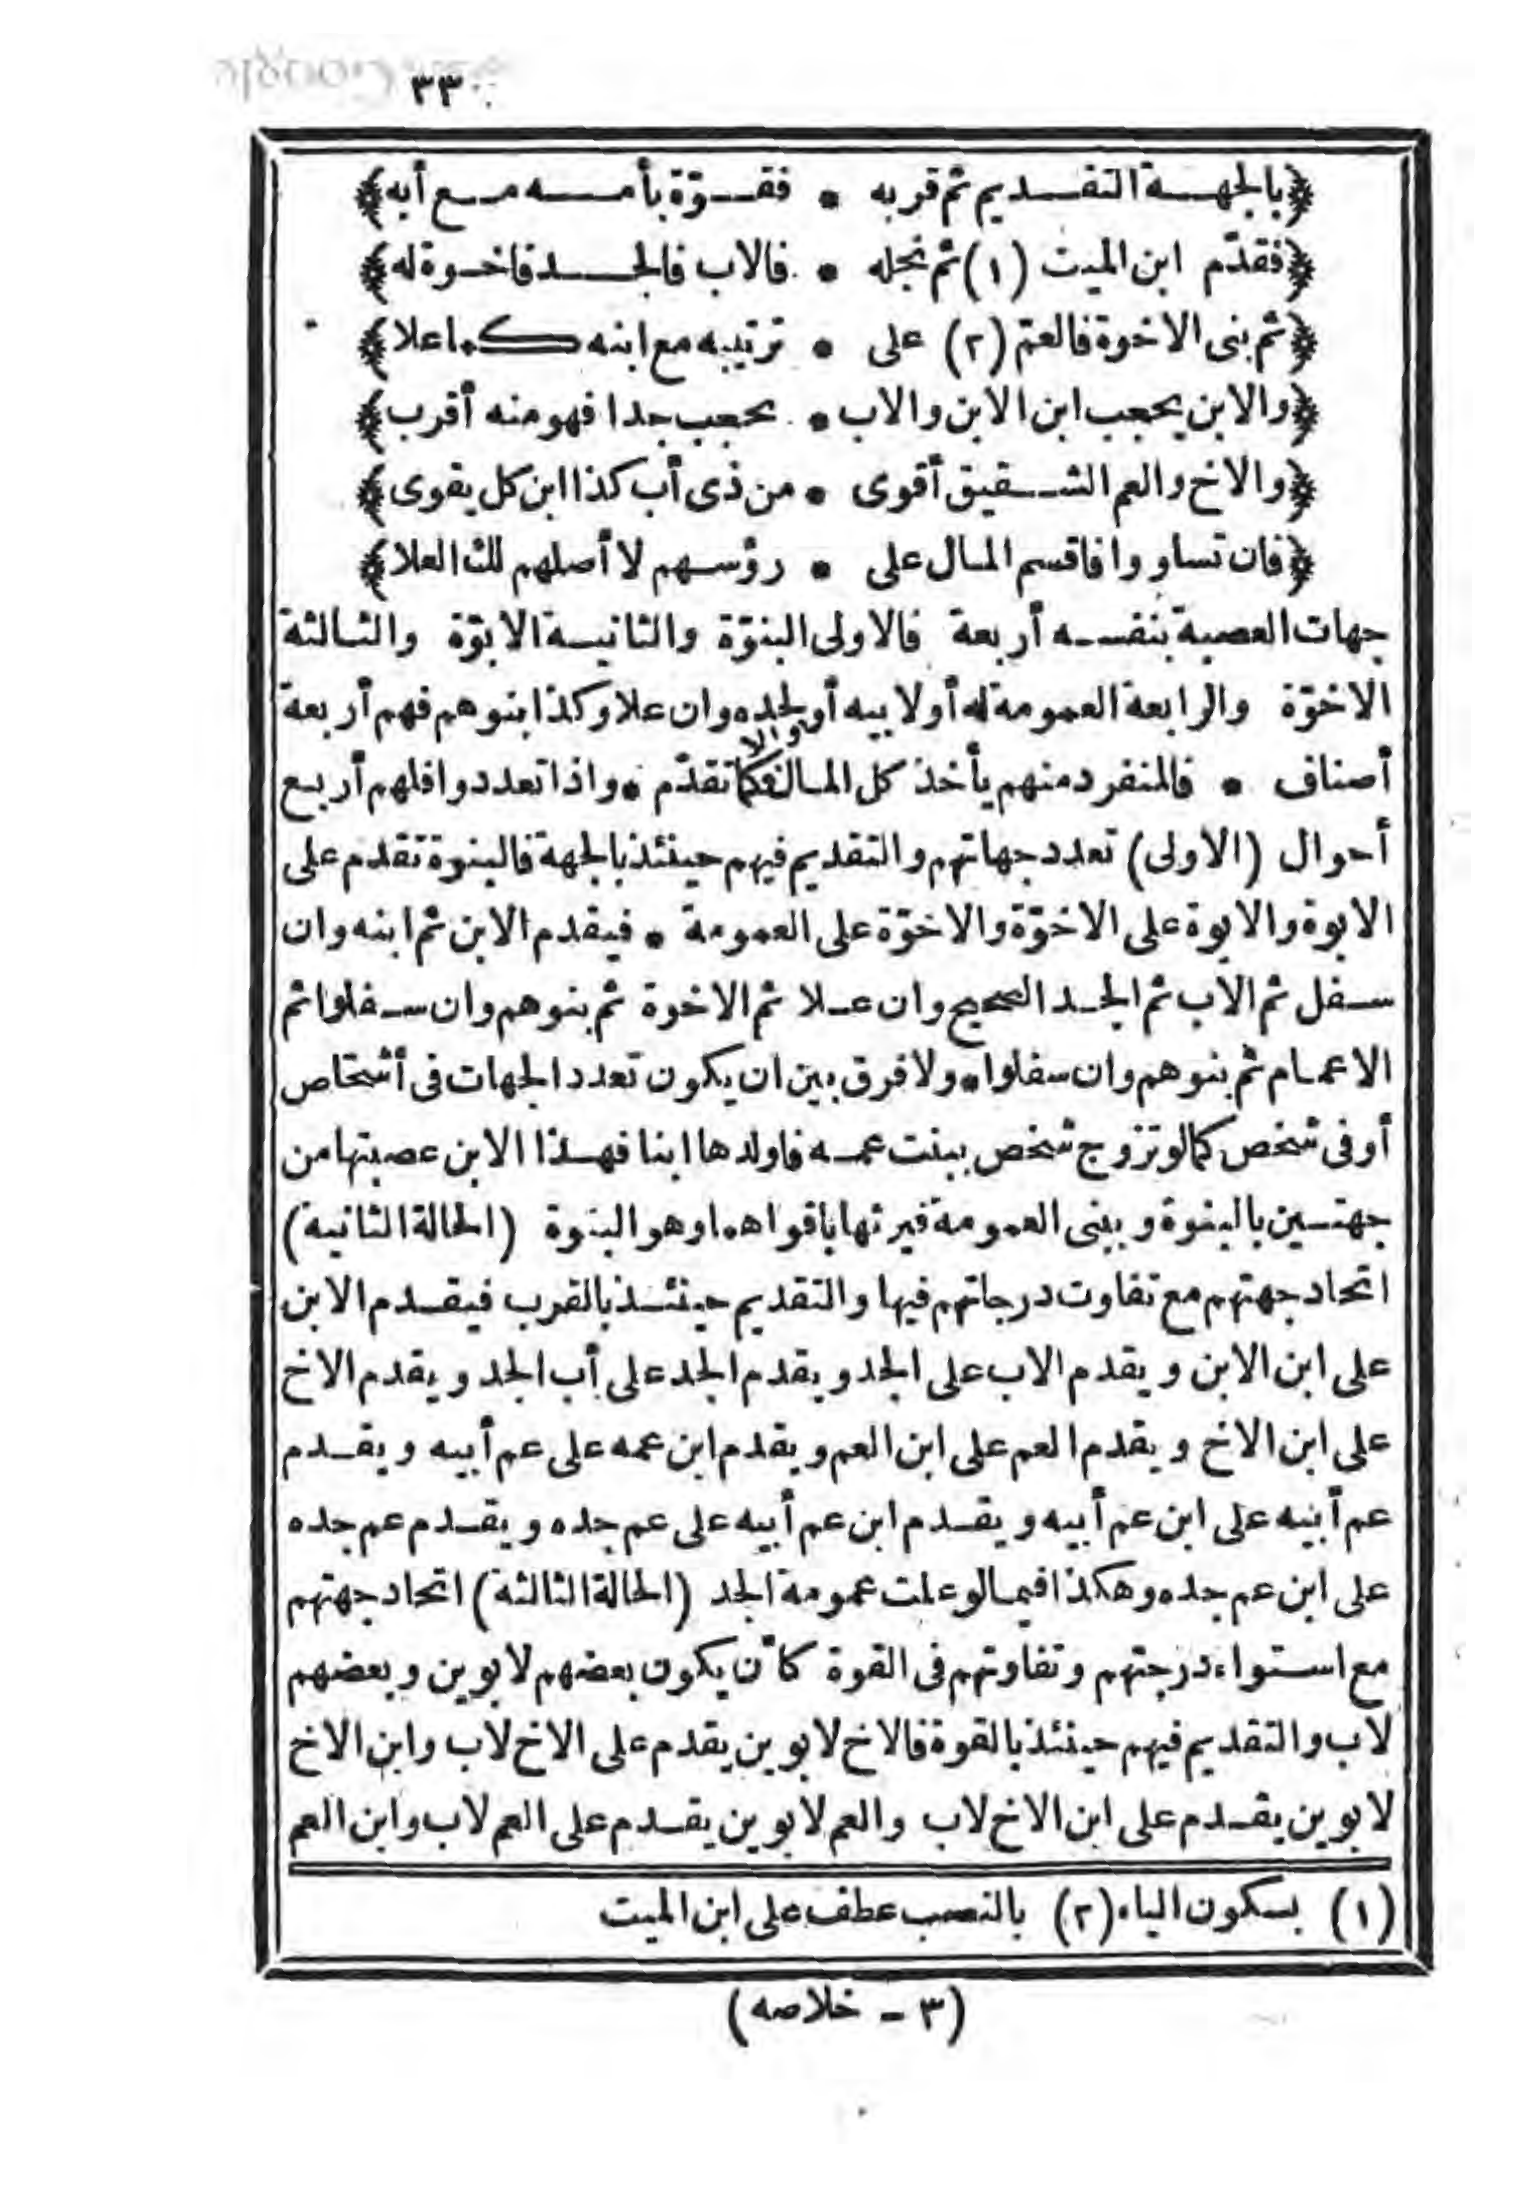 ٣٣
﴿بالجهة التقديم ثم قربه • فقوّة بأمه مع أبه﴾
﴿فقدّم ابن الميت (١) ثم نجله • فالاب فالجد فاخوة له﴾
﴿ثم بنى الاخوة فالعمّ (٢) على • ترتيبه مع ابنه كما علا﴾
﴿والابن يحجب ابن الابن والاب • يحجب جدا فهو منه أقرب﴾
﴿والاخ والعم الشقيق أقوى • من ذى أب كذا ابن كل يقوى﴾
﴿فان تساووا فاقسم المال على • رؤسهم لا أصلهم لك العلا﴾
جهات العصبة بنفسه أربعة فالاولى البنوّة والثانية الابوّة والثالثة
الاخوّة والرابعة العمومة له أولابيه أولجده وان علا وكذا بنوهم فهم أربعة
أصناف • فالمنفرد منهم يأخذ كل المال والا فكما تقدّم • واذا تعددوا فلهم أربع
أحوال (الاولى) تعدد جهاتهم والتقديم فيهم حينئذ بالجهة فالبنوة تقدم على
الابوة والابوة على الاخوّة والاخوّة على العمومة • فيقدم الابن ثم ابنه وان
سفل ثم الاب ثم الجد الصحيح وان علا ثم الاخوة ثم بنوهم وان سفلوا ثم
الاعمام ثم بنوهم وان سفلوا • ولا فرق بين ان يكون تعدد الجهات فى أشخاص
أو فى شخص كما لو تزوج شخص ببنت عمه فاولدها ابنا فهذا الابن عصبتها من
جهتين بالبنوة وببنى العمومة فيرثها باقواهما وهو البنوة (الحالة الثانية)
اتحاد جهتهم مع تفاوت درجاتهم فيها والتقديم حينئذ بالقرب فيقدم الابن
على ابن الابن ويقدم الاب على الجد ويقدم الجد على أب الجد ويقدم الاخ
على ابن الاخ ويقدم العم على ابن العم ويقدم ابن عمه على عم أبيه ويقدم
عم أبيه على ابن عم أبيه ويقدم ابن عم أبيه على عم جده ويقدم عم جده
على ابن عم جده وهكذا فيما لو علت عمومة الجد (الحالة الثالثة) اتحاد جهتهم
مع استواء درجتهم وتفاوتهم فى القوة كأن يكون بعضهم لابوين وبعضهم
لاب والتقديم فيهم حينئذ بالقوة فالاخ لابوين يقدم على الاخ لاب وابن الاخ
لابوين يقدم على ابن الاخ لاب والعم لابوين يقدم على العم لاب وابن العم
(١) بسكون الياء (٢) بالنصب عطف على ابن الميت
(٣ - خلاصه)